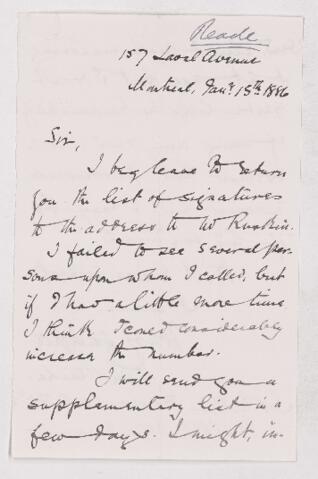 Reade
157 Laval Avenue
Montreal, Jany 15th 1886
Sir,
I beg leave to return
you the list of signatures
to the address to Mr Ruskin.
I failed to see several per-
sons upon whom I called, but
if I had a little more time
I think I coned considerably
increase the number.
I will send you a
supplementary list in a
few days. I might, in-